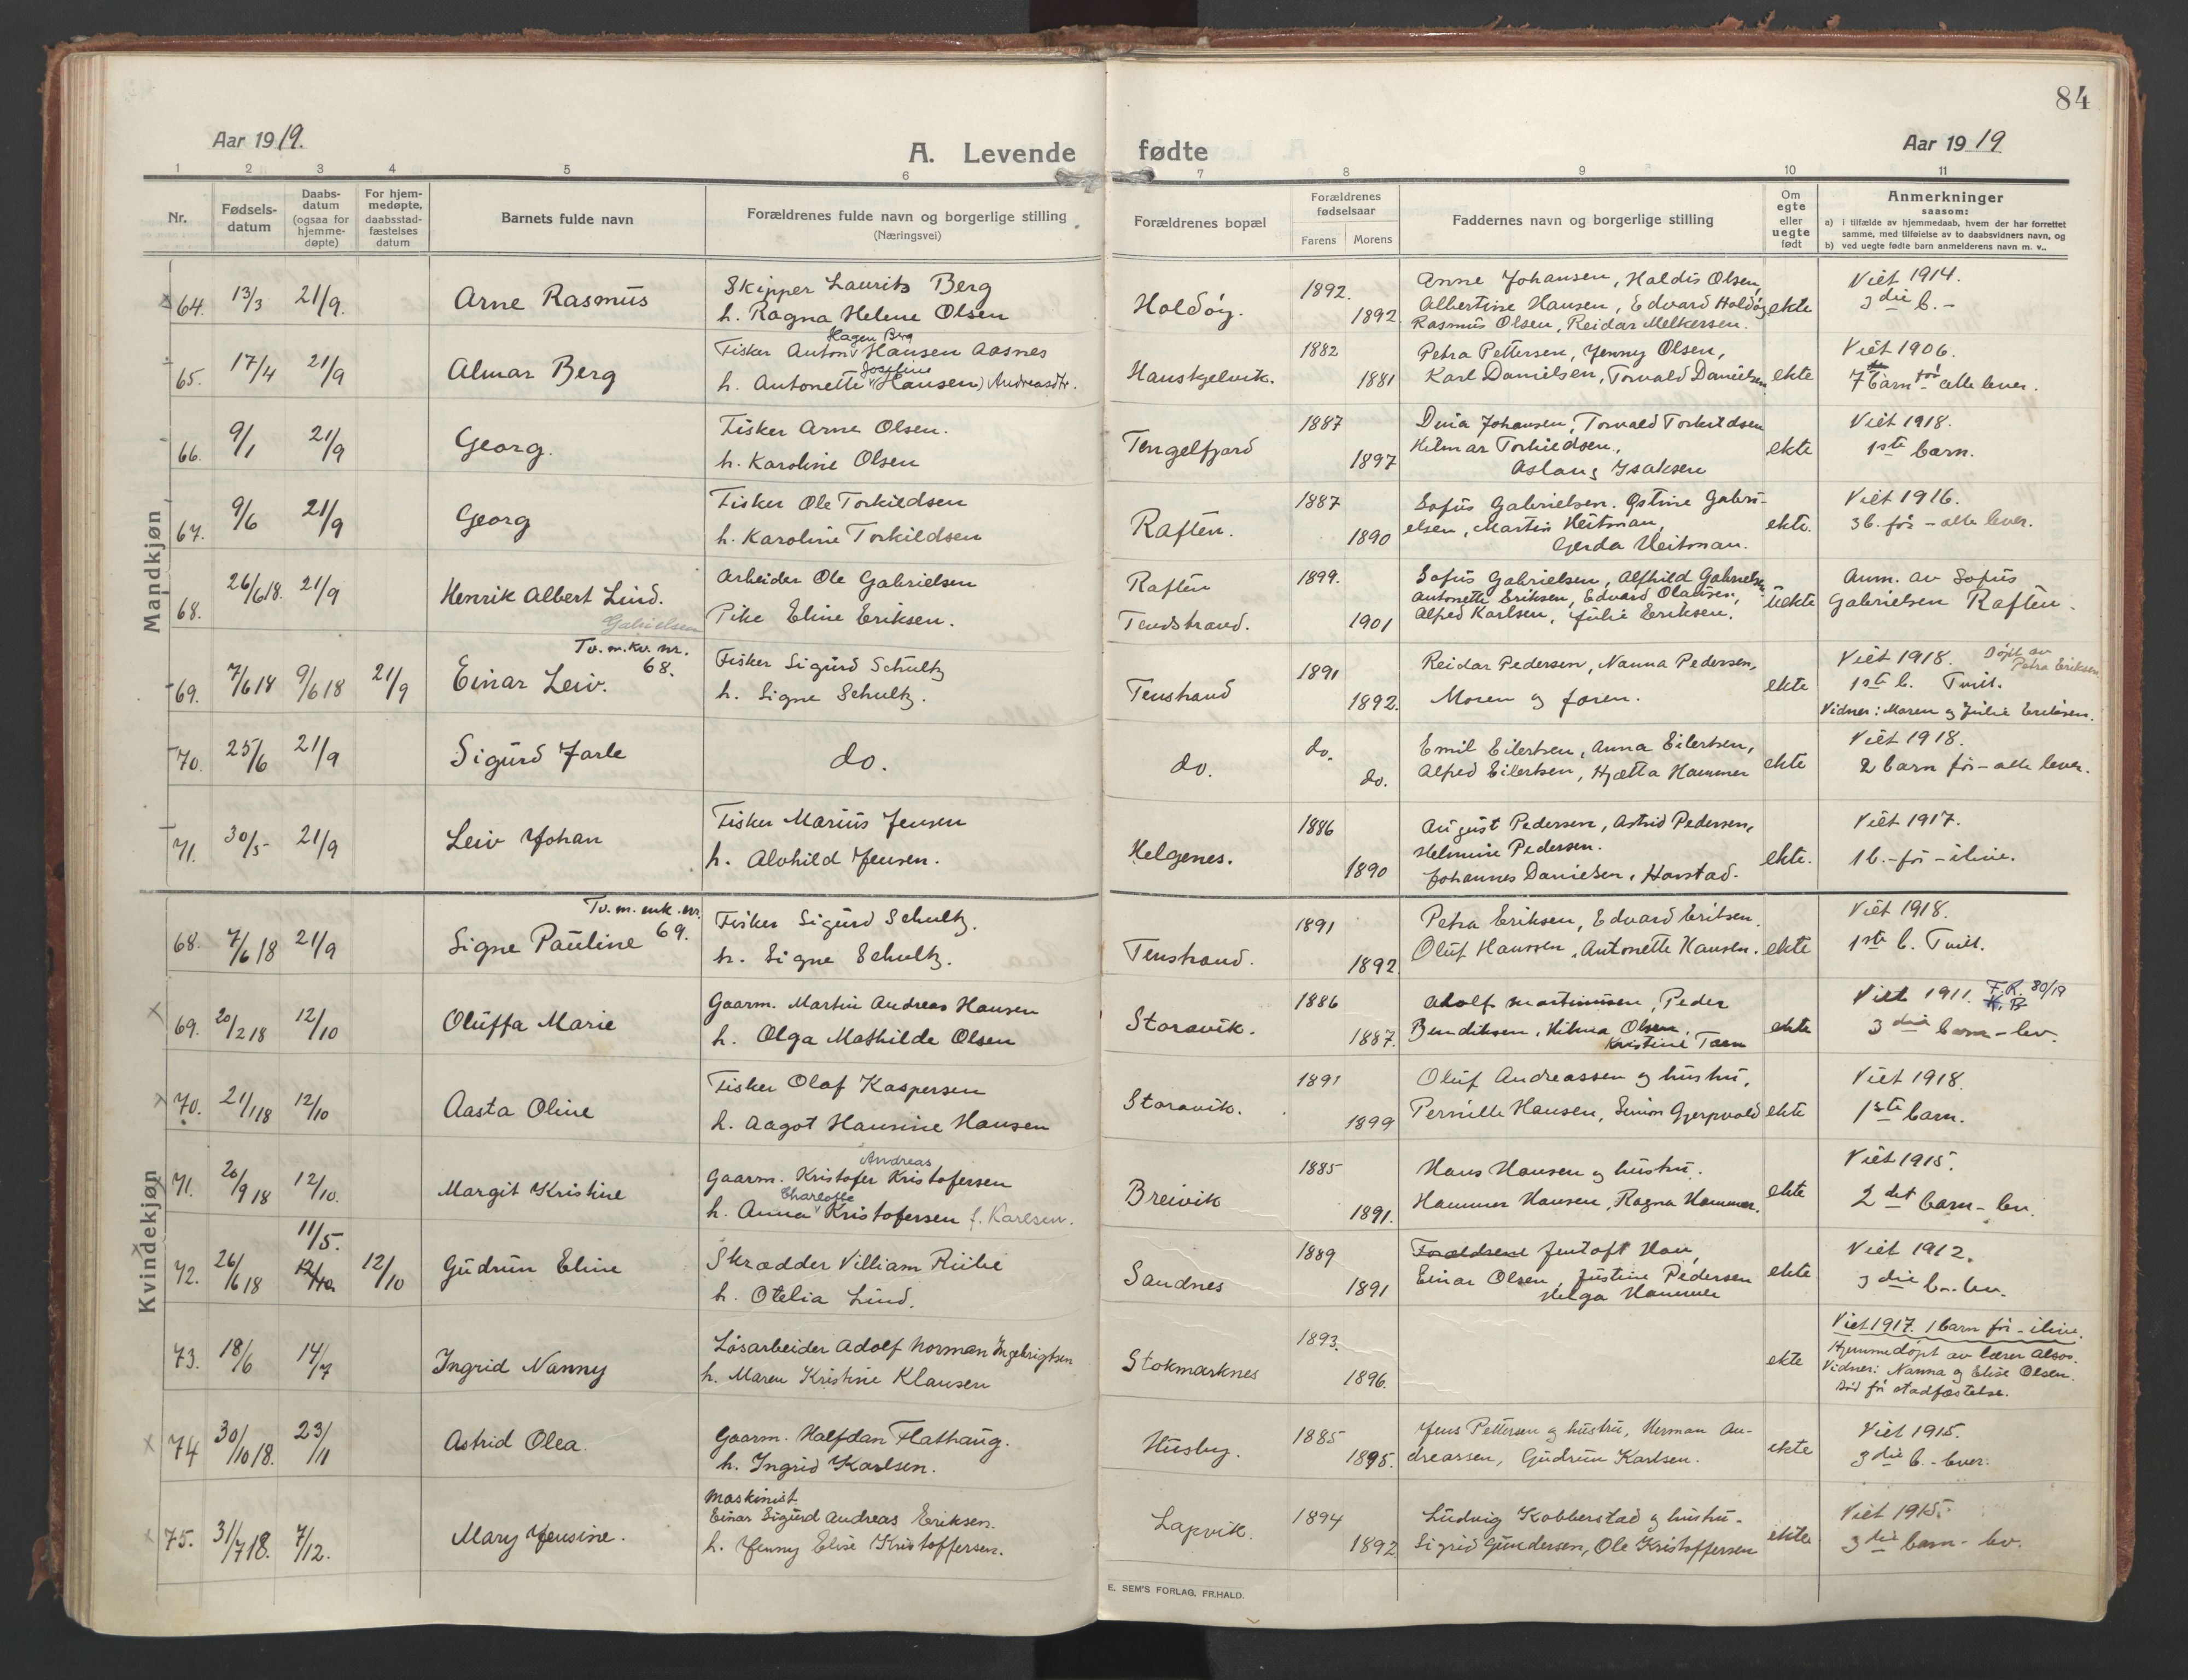 84
Aar 1919.
A. Levende fødte
Aar 1919
1 2 3 4 5 6 7 8 9 10 11
Nr.
Fødsels-
datum
Daabs-
datum
(ogsaa for
hjemme-
døpte)
For hjem-
medøpte,
daabsstad-
fæstelses
datum
Barnets fulde navn
Forældrenes fulde navn og borgerlige stilling
(Næringsvei)
Forældrenes bopæl
Forældrenes
fødselsaar
Farens Morens
Faddernes navn og borgerlige stilling
Om
egte
eller
uegte
født
Anmerkninger
saasom:
a) i tilfælde av hjemmedaab, hvem der har forrettet
samme, med tilføielse av to daabsvidners navn, og
b) ved uegte fødte barn anmelderens navn m. v..
Mandkjøn
64. 13/3 21/9. Arne Rasmus
Skipper Laurits Berg
h. Ragna Helene Olsen
Holdøy. 1892. 1892
Anne Johansen, Haldis Olsen,
Albertine Hansen, Edvard Holdøy
Rasmus Olsen, Reidar Melkersen.
ekte
Viet 1914.
3die b. -
65. 17/4 21/9 Almar Berg
Hagen Berg
Fisker Anton Hansen Aasnes
Josefine
h. Antonette (Hansen) Andreasdtr.
Hanskjelvik. 1882 1881
Petra Pettersen, Jenny Olsen,
Karl Danielsen, Torvald Danielsen
ekte
Viet 1906.
7 barn før - alle lever.
66. 9/1 21/9 Georg.
Fisker Arne Olsen.
h. Karoline Olsen
Tengelfjord 1887 1897
Dina Johansen, Torvald Torkildsen
Hilmar Torkildsen,
Aslaug Isaksen
ekte
Viet 1918.
1ste barn.
67. 9/6 21/9 Georg
Fisker Ole Torkildsen
h. Karoline Torkildsen
Raften. 1887 1890
Sofus Gabrielsen. Østine Gabri-
elsen, Martin Heitman,
Gerda Heitman.
ekte.
Viet 1916.
3 b. før - alle lever.
68. 26/6 18. 21/9 Henrik Albert Lind.
Gabrielsen
Arbeider Ole Gabrielsen
Pike Eline Eriksen.
Raften
Tenstrand. 1899. 1901
Sofus Gabrielsen, Alfhild Gabrielsen
Antonette Eriksen, Edvard Olaussen,
Alfred Karlsen, Julie Eriksen.
uekte
Anm. av Sofus
Gabrielsen Raften.
Tv. m. kv. nr.
68.
69. 7/6 18 9/6 18 21/9 Einar Leiv.
Fisker Sigurd Schultz
h. Signe Schultz.
Tenstrand 1891 1892.
Reidar Pedersen, Nanna Pedersen,
Moren og faren.
ekte
Viet 1918. Døpt av
Petra Eriksen
1ste b. Tvill.
Vidner: Maren og Julie Eriksen.
70. 25/6 21/9 Sigurd Jarle
do. do. do. do.
Emil Eilertsen, Anna Eilertsen,
Alfred Eilertsen, Hjætta Hammer
ekte
Viet 1918.
2 barn før - alle lever.
71. 30/5 21/9 Leiv Johan
Fisker Marius Jensen
h. Alvhild Jensen.
Helgenes. 1886 1890
August Pedersen, Astrid Pedersen,
Helmine Pedersen.
Johannes Danielsen, Harstad.
ekte.
Viet 1917.
1 b. - før - ilive.
Kvindekjøn
Tv. m. mk. nr.
69.
68. 7/6 18 21/9 Signe Pauline
Fisker Sigurd Schultz.
h. Signe Schultz.
Tenstrand. 1891 1892
Petra Eriksen, Edvard Eriksen.
Oluf Hanssen, Antonette Hansen.
ekte
Viet 1918.
1ste b. Tvill.
69. 20/2 18 12/10 Oluffa Marie
Gaarm. Martin Andreas Hansen
h. Olga Mathilde Olsen
Storavik. 1886 1887.
Adolf Martinusen, Peder
Bendiksen, Hilma Olsen,
Kristine Taen
ekte
Viet 1911. F.R. 80/19
K. B
3die barn - lev.
70. 21/1 18 12/10 Aasta Oline
Fisker Olaf Kaspersen
h. Aagot Hansine Hansen
Storavik. 1891 1899
Oluf Andreassen og hustru,
Pernille Hansen, Simon Gjerpvold
ekte
Viet 1918.
1ste barn.
71. 20/9 18 12/10. Margit Kristine
Andreas
Gaarm. Kristofer Kristofersen
Charlotte
h. Anna Kristofersen f. Karlsen.
Breivik 1885 1891.
Hans Hansen og hustru.
Hammer Hansen, Ragna Hammer.
ekte
Viet 1915.
2det barn - lev.
11/5.
72. 26/6 18 12/10 12/10 Gudrun Eline
Skrædder Villiam Riibe
h. Otelia Lind.
Sandnes 1889 1891
Forældrene Jentoft Hov,
Einar Olsen, Justine Pedersen
Helga Hammer
ekte
Viet 1912.
3die b. - lev.
73. 18/6 14/7 Ingrid Nanny
Løsarbeider Adolf Norman Ingebrigtsen
h. Maren Kristine Klausen
Stokmarknes 1893. 1896.
ekte
Viet 1917. 1 barn før - ilive.
Hjemmedøpt av lærer Alsos.
Vidner: Nanna og Elise Olsen.
Død før stadfæstelse.
74 30/10 18. 23/11 Astrid Olea.
Gaarm. Halfdan Flathaug.
h. Ingrid Karlsen.
Husby. 1885 1895.
Jens Pettersen og hustru, Herman An-
dreassen, Gudrun Karlsen.
ekte
Viet 1915.
3die b. - lever.
75. 31/7 18. 7/12. Mary Jensine.
Maskinist
Einar Sigurd Andreas Eriksen.
h. Jenny Elise Kristoffersen.
Lapvik. 1894 1892
Ludvig Kobberstad og hustru.
Sigrid Gundersen, Ole Kristoffersen
ekte
Viet 1915.
3die barn - lev.
E. SEM'S FORLAG, FR.HALD.